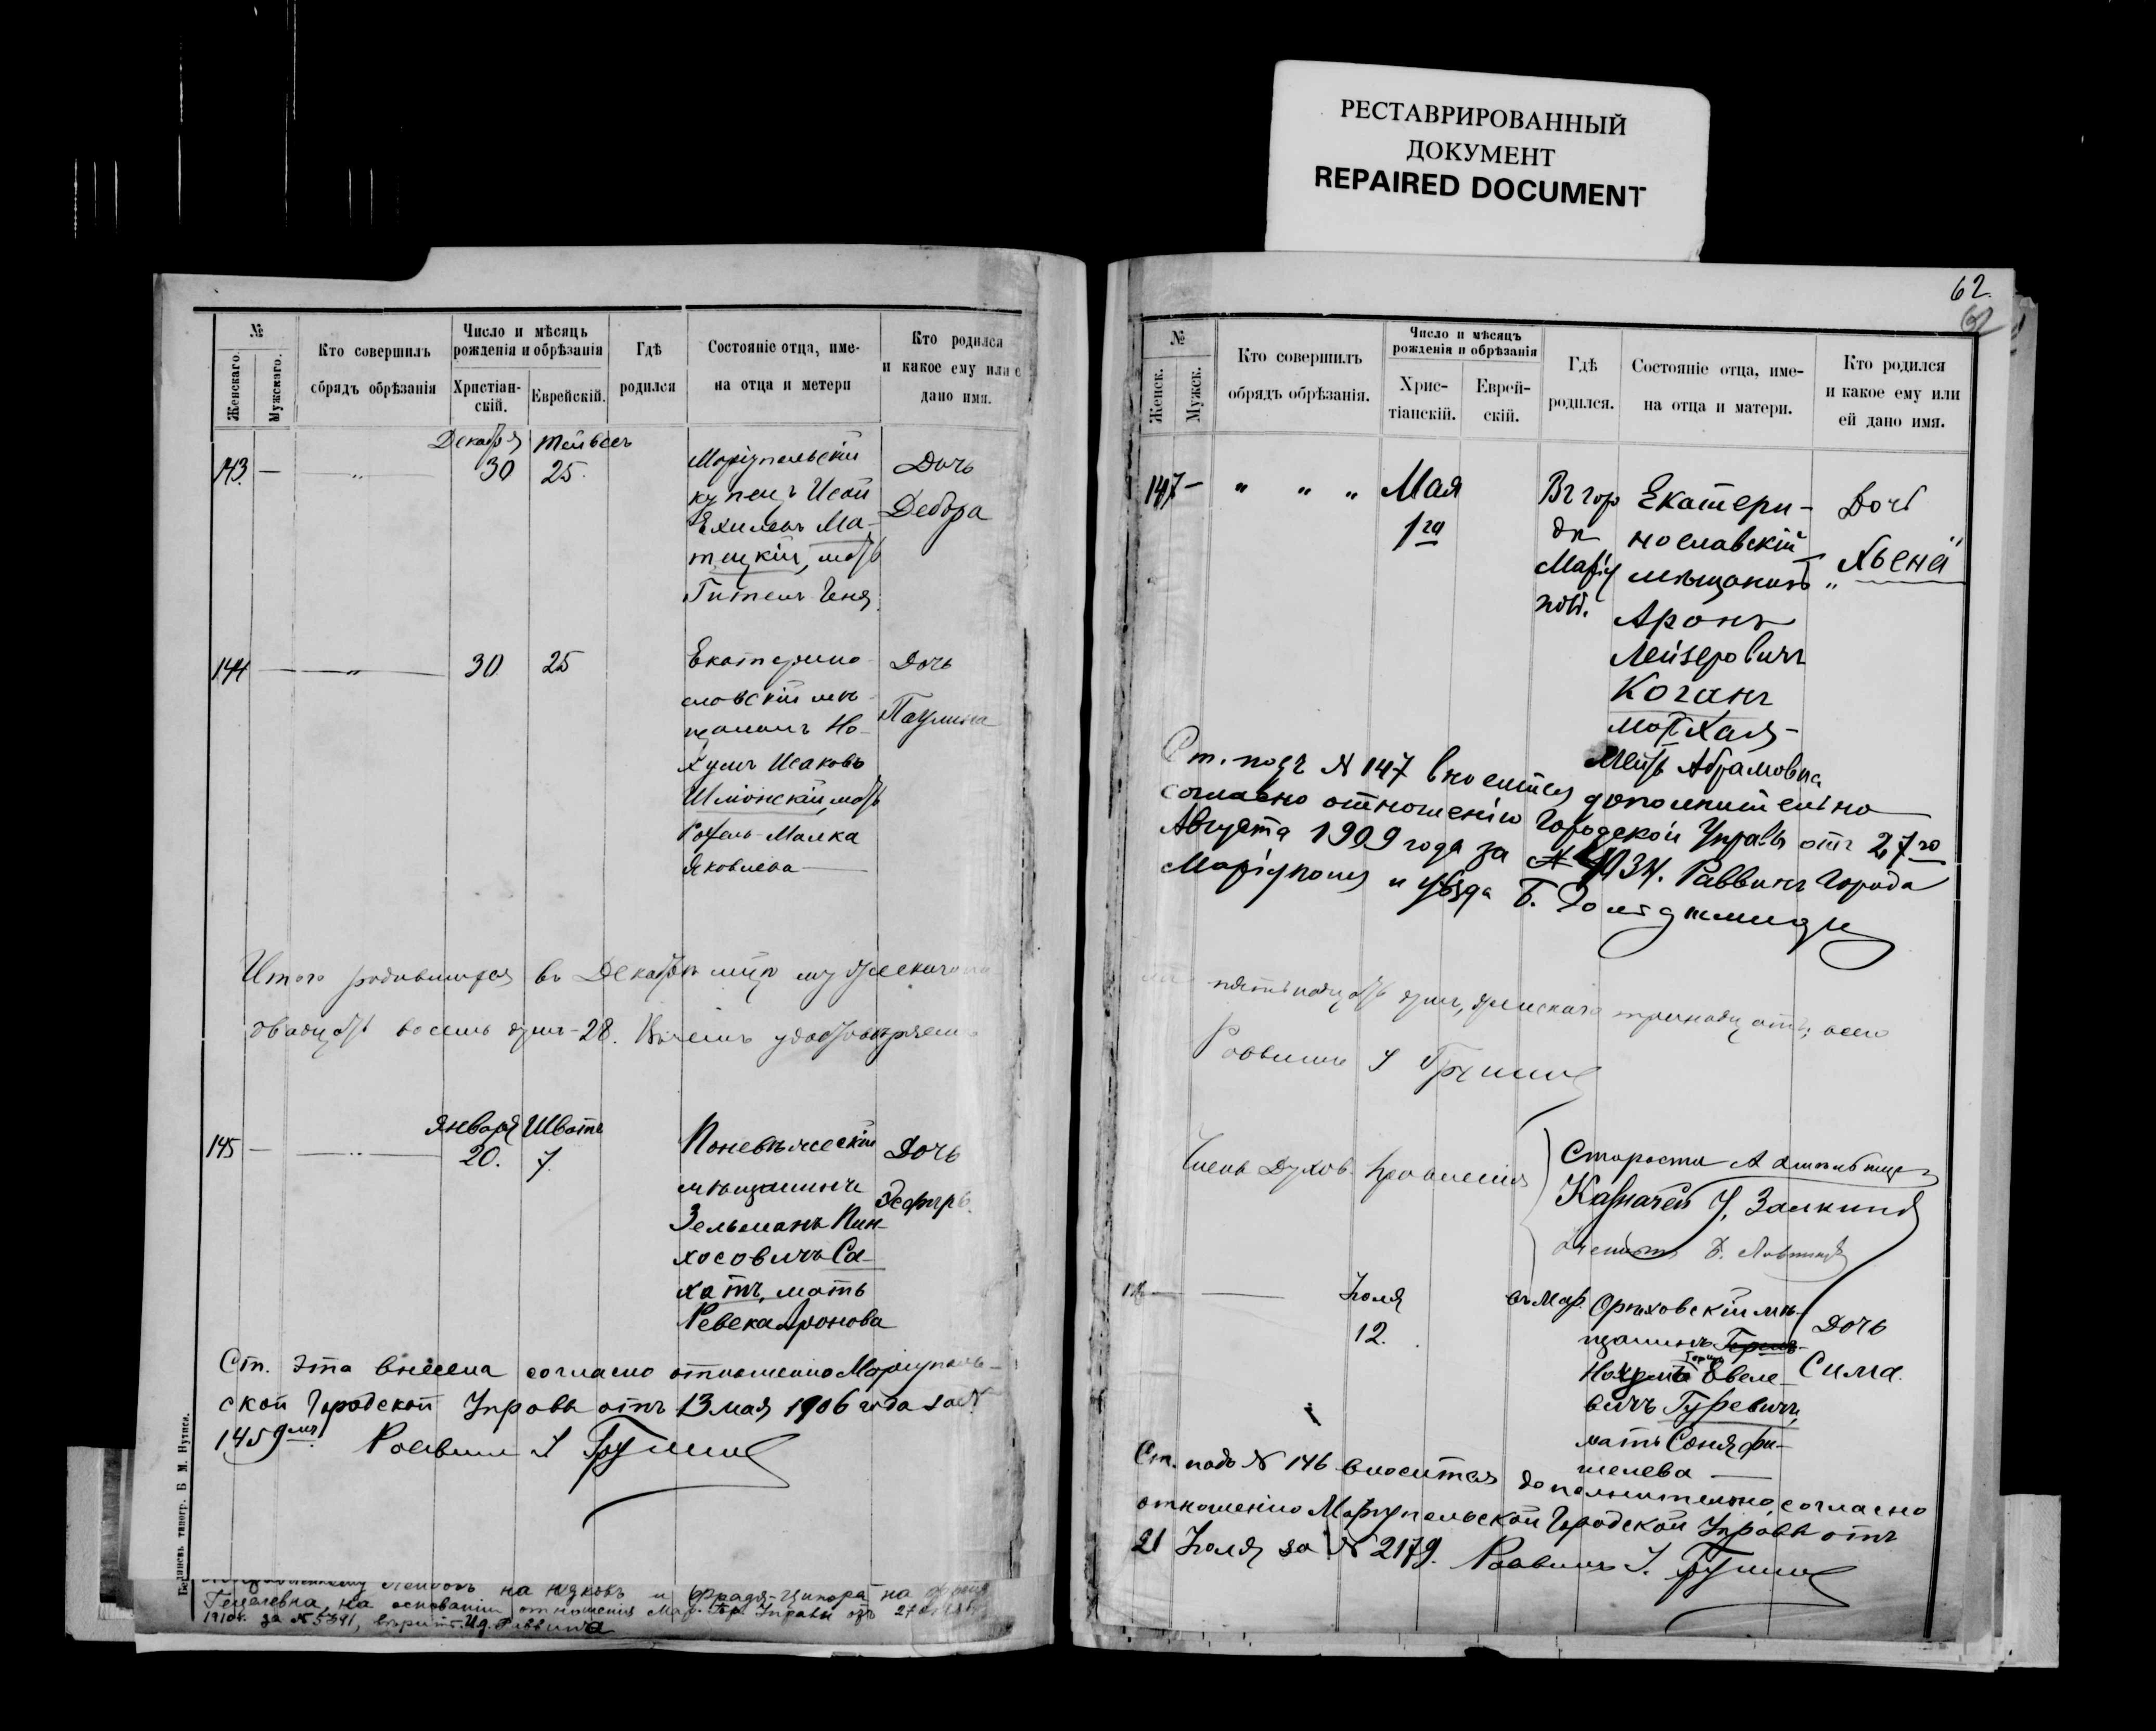 РЕСТАВРИРОВАННЫЙ
ДОКУМЕНТ
REPAIRED DOCUMENT
№
Женскаго.
Мужскаго.
Кто совершилъ
обрядъ обрѣзанія
Число и мѣсяцъ
рожденія и обрѣзанія
Христіан-
скій.
Еврейскій.
Гдѣ
родился
Состояніе отца, име-
на отца и метери
Кто родился
и какое ему или е
дано имя.
Декабря Тейвесъ
143 — " 30 25.
Маріупольскій
купецъ Исай
Ехилевъ Ма-
тецкій, мать
Гитель Геня
Дочь
Дебора
144 — " — 30 25
Екатерино-
славскій мѣ-
щанинъ Но-
хумъ Исаковъ
Шміонскій, мать
Рохель-Малка
Яковлева —
Дочь
Паулина
Итого родившихся въ Декабрѣ м-цѣ мужескаго
двадцать восемь душъ - 28. Въ чемъ удостовѣряемъ
Января Шватъ
145 — " — 20. 7.
Поневѣжескій
мѣщанинъ
Зельманъ Пин-
хосовичъ Са-
хатъ, мать
Ревека Аронова
Дочь
Эсфирь.
Ст. эта внесена согласно отношенію Маріуполь-
ской Городской Управы отъ 13 мая 1906 года за №
1459мъ. Раввинъ
на Юдковъ и Фрадя-Ципора на
Гецелевна, на основаніи отношенія Мар. Гор. Управы отъ 27
1910г. за № 5391, Ид. Раввина
Бердичевъ типогр. Б М. Нутиса.
62.
62
№
Женск.
Мужск.
Кто совершилъ
обрядъ обрѣзанія.
Число и мѣсяцъ
рожденія и обрѣзанія
Хрис-
тіанскій.
Еврей-
скій.
Гдѣ
родился.
Состояніе отца, име-
на отца и матери.
Кто родился
и какое ему или
ей дано имя.
147 — " " "
Мая
1го
Въ горо
дѣ
Маріу
поль.
Екатери-
нославскій
мѣщанинъ
Аронъ
Лейзеровичъ
Коганъ
мать Хая-
Мейта Абрамовна
Дочь
"Хьена"
Ст. подъ № 147 вносится дополнительно
согласно отношенію Городской Управы отъ 27го
Августа 1909 года за № 4034. Раввинъ Города
Маріуполя и уѣзда Б.
пятнадцать душъ, женскаго тринадцать; всего
Раввинъ
Члены Духов. Правленія
Староста А
Казначей У. Залкинд
Ученый Б.
146 —
Іюля
12.
въ Мар.
Орѣховскій мѣ-
щанинъ
Нохумъ Евеле-
вичъ Гуревичъ,
мать Соня Фи-
шелева —
Дочь
Сима.
Ст. подъ № 146 вносится дополнительно, согласно
отношенію Маріупольской Городской Управы отъ
21 Іюля за № 2179. Раввинъ